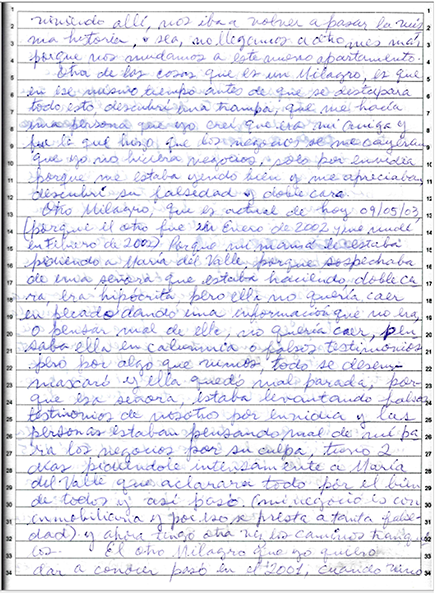 viviendo allí, nos iba a volver a pasar la mis
ma historia, o sea, no llegamos a otro mes más
porque nos mudamos a este nuevo apartamento.
Otra de las cosas que es un Milagro, es que
en ese mismo tiempo antes de que se destapara
todo esto, descubrí una trampa, que me hacía
una persona que yo creí que era mi amiga y
fue la que hizo, que los negocios se me cayeran
que yo no hiciera negocios, solo por envidia
porque me estaba yendo bien y me apreciaban,
descubrí su falsedad y doble cara.
Otro Milagro, que es actual de hoy 09/05/03,
(porque el otro fue en Enero de 2002 y me mudé
en Febrero de 2002). Porque mi mamá le estaba
pidiendo a María del Valle, porque sospechaba
de una señora que estaba haciendo doble ca
ra, era hipócrita, pero ella no quería caer
en pecado dando una información que no era,
o pensar mal de ella, no quería caer, pen
saba ella en calumnia o falsos testimonios
pero por algo que vimos, todo se desen
mascaró y ella quedó mal parada, por
que esa señora, estaba levantando falsos
testimonios de nosotros por envidia y las
personas estaban pensando mal de mí pa
ra los negocios por su culpa, tuvo 2
días pidiéndole intensamente a María
del Valle que aclarara todo por el bien
de todos y así pasó. (mi negocio es con
inmobiliaria y por eso se presta a tanta false
dad) y ahora tengo otra vez los caminos tranqui
los. El otro Milagro que yo quiero
dar a conocer pasó en el 2001, cuando vino